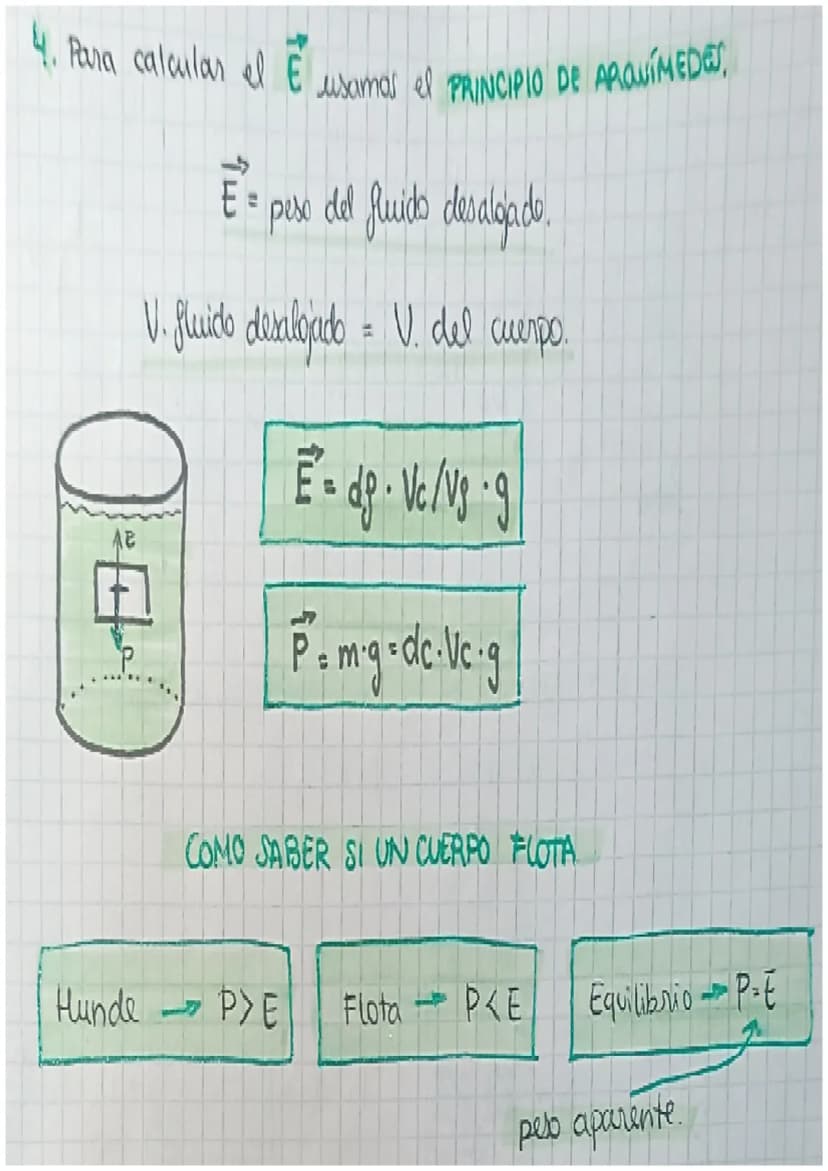 4. Para calcular el E⃗ usamos el PRINCIPIO DE ARQUÍMEDES.
E⃗ = peso del fluido desalojado.
V. fluido desalojado = V. del cuerpo.
E⃗ = df · Vc/Vf · g
E
P
P⃗ = m·g = dc·Vc·g
COMO SABER SI UN CUERPO FLOTA
Hunde → P > E
Flota → P < E
Equilibrio → P = E
peso aparente.